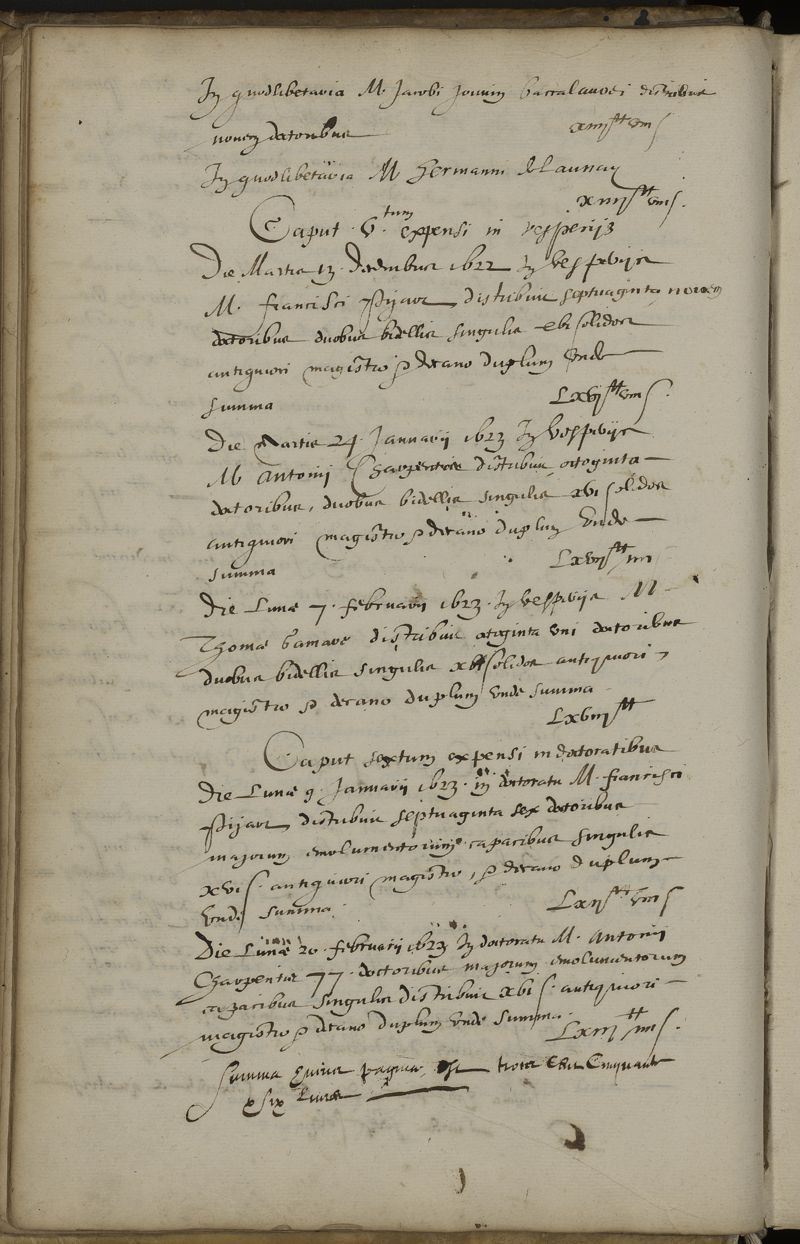 In quodlibetaria M. Jacobi Jouvin baccalaurei distribui
novem doctoribus xiiij tt viij s
In quodlibetaria M. Hermanni de Launay
xiiij tt viij s.
Caput v.tum expensi in vesperijs
Die Martis 13. Decembris 1622 In vesperijs
M. Francisci Pijart distribui septuaginta novem
doctoribus duobus bidellis singulis xvi solidos
antiquiori magistro & decano duplum Unde
summa Lxvj tt viij s.
Die Martis 24. Januarij 1623 In vesperijs
M. Antonij Charpentier distribui octoginta
doctoribus, duobus bidellis singulis xvi solidos
antiquiori magistro & decano duplum Unde
summa Lxvij tt iiij
Die Lunæ 7. februarij 1623. In vesperijs M.
Thomæ Gamare distribui octoginta uni doctoribus
duobus bidellis singulis xvi solidos antiquiori
magistro & decano duplum Unde summa
Lxviij tt
Caput sextum expensi in doctoratibus
Die Lunæ 9. Januarij 1623. in doctoratu M. Francisci
Pijart distribui septuaginta sex doctoribus
majorum emolumentorum capacibus singulis
xvi s. antiquiori magistro, & decano duplum
Unde summa Lxij tt viij s
Die Lunæ 20. februarij 1623 In doctoratu M. Antonij
Charpentier 77. doctoribus majorum emolumentorum
capacibus singulis distribui xvi s. antiquiori
magistro & decano duplum Unde summa.
Lxiij tt iiij s.
Summa hujus paginæ est trois cens Cinquante
& six Livres